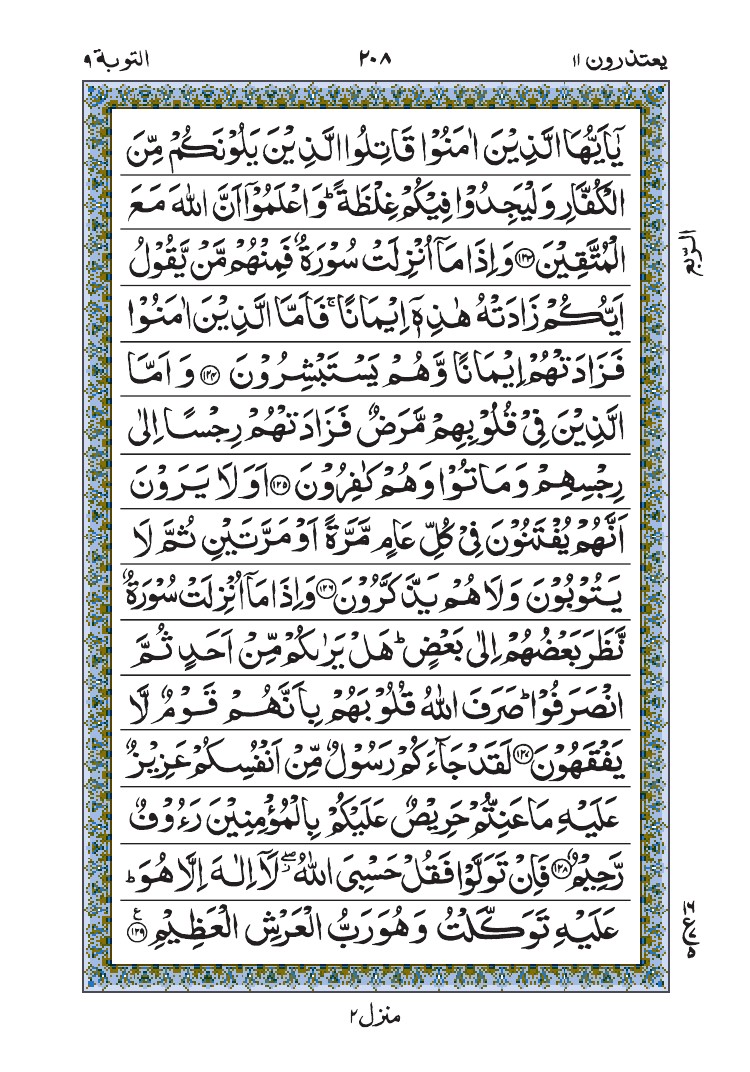 يعتذرون ١١
٢٠٨
التوبة ٩
يٰۤاَيُّهَا الَّذِيْنَ اٰمَنُوْا قَاتِلُوا الَّذِيْنَ يَلُوْنَكُمْ مِّنَ
الْكُفَّارِ وَلْيَجِدُوْا فِيْكُمْ غِلْظَةً ؕ وَاعْلَمُوْۤا اَنَّ اللّٰهَ مَعَ
الْمُتَّقِيْنَ ﴿۱۲۳﴾ وَاِذَا مَاۤ اُنْزِلَتْ سُوْرَةٌ فَمِنْهُمْ مَّنْ يَّقُوْلُ
اَيُّكُمْ زَادَتْهُ هٰذِهٖۤ اِيْمَانًا ۚ فَاَمَّا الَّذِيْنَ اٰمَنُوْا
فَزَادَتْهُمْ اِيْمَانًا وَّهُمْ يَسْتَبْشِرُوْنَ ﴿۱۲۴﴾ وَاَمَّا
الَّذِيْنَ فِيْ قُلُوْبِهِمْ مَّرَضٌ فَزَادَتْهُمْ رِجْسًا اِلٰى
رِجْسِهِمْ وَمَاتُوْا وَهُمْ كٰفِرُوْنَ ﴿۱۲۵﴾ اَوَلَا يَرَوْنَ
اَنَّهُمْ يُفْتَنُوْنَ فِيْ كُلِّ عَامٍ مَّرَّةً اَوْ مَرَّتَيْنِ ثُمَّ لَا
يَتُوْبُوْنَ وَلَا هُمْ يَذَّكَّرُوْنَ ﴿۱۲۶﴾ وَاِذَا مَاۤ اُنْزِلَتْ سُوْرَةٌ
نَّظَرَ بَعْضُهُمْ اِلٰى بَعْضٍ ؕ هَلْ يَرٰىكُمْ مِّنْ اَحَدٍ ثُمَّ
انْصَرَفُوْا ؕ صَرَفَ اللّٰهُ قُلُوْبَهُمْ بِاَنَّهُمْ قَوْمٌ لَّا
يَفْقَهُوْنَ ﴿۱۲۷﴾ لَقَدْ جَآءَكُمْ رَسُوْلٌ مِّنْ اَنْفُسِكُمْ عَزِيْزٌ
عَلَيْهِ مَا عَنِتُّمْ حَرِيْصٌ عَلَيْكُمْ بِالْمُؤْمِنِيْنَ رَءُوْفٌ
رَّحِيْمٌ ﴿۱۲۸﴾ فَاِنْ تَوَلَّوْا فَقُلْ حَسْبِيَ اللّٰهُ ۖ لَاۤ اِلٰهَ اِلَّا هُوَ ؕ
عَلَيْهِ تَوَكَّلْتُ وَهُوَ رَبُّ الْعَرْشِ الْعَظِيْمِ ﴿۱۲۹﴾ ع
الربع
منزل ٢